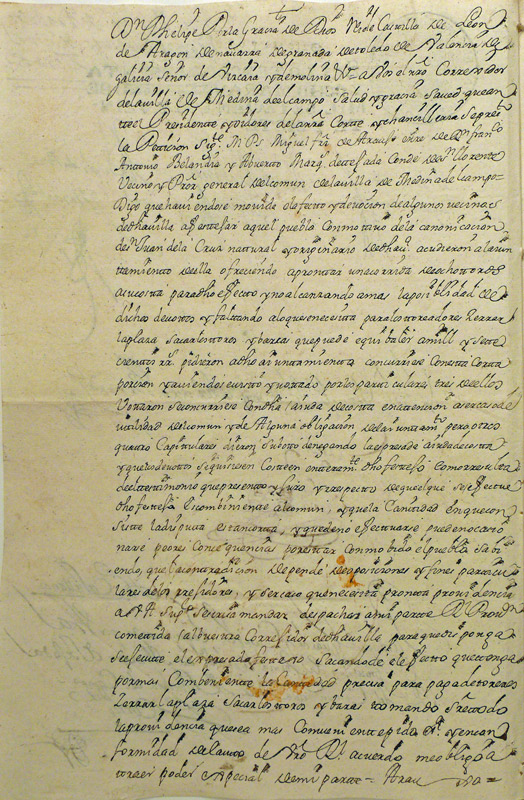 Dn Phelipe Por la Gracia de Dios Rey de Castilla de Leon
de Aragon de navarra de granada de toledo de Valencia de
galicia señor de Vizcaia y de molina &a A Vos el nro Correxidor
de la villa de Medina del campo Salud y gracia saved que an
te el Presidente y oidores de la nra Corte y chancilleria se presto
la Peticion sigte M. P. S. Miguel frz de Arauxo en nre de Dn franco
Antonio Belandia y Conde de Sn Llorente
Vecino y Pror general del comun de la villa de Medina del campo
Digo que haviendose movido el afecto y devocion de algunos vecinos
de dha villa a festejar aquel pueblo con motivo de la canonicacion
de Sn Juan de la Cruz natural y originario de dha va acudieron al aiun
tamiento de ella ofreciendo aprontar una corrida de ocho toros
a su costa para dho effecto y no alcanzando a mas la posiblidad de
dichos devotos y faltando a lo que se necesita para los toreadores zerrar
la plaza sacar los toros y baras que puede equibaler a mill y sete
cientos rrs pidieron a dho aiuntamiento concurriese con esta corta
porcion y aviendose visto y votado por los particulares tres de ellos
Votaron se concurriese con dha aiuda de costa en atencion a ser caso de
vtilidad del comun y de Alguna obligacion de la aiuntamto pero otros
quatro Capitulares dieron su boto denegando la expresada aiuda de costa
y que los devotos siguiesen costeen enteramte dho festejo como resulta
del testimonio que presento y Juro y respecto de que el que se effectue
dho festejo es combiniente al comun, y que la Cantidad en que con
siste la disputa es tan corta, y que de no effectuarse pueden ocacio
narse peores consequencias por estar conmobido el pueblo sabi
endo, que la contradicion depende de oposiciones y fines particu
lares de los rexidores, y ser caso que necesita pronta providencia
A V. A. Supco se sirva mandar despachar a mi parte Rl Provon
cometida a el vuestro Correxidor de dha villa para que disponga
se efectue el expresado festexo sacandose el efecto que tenga
por mas combeniente la Cantidad precisa para paga de toreros
zerrar la plaza sacar los toros y baras tomando sre todo
la providencia que sea mas conveniente pido Ja y en con
formidad de lauto de vro Rl acuerdo me obligo a
traer poder especial de mi parte = Arau xo =